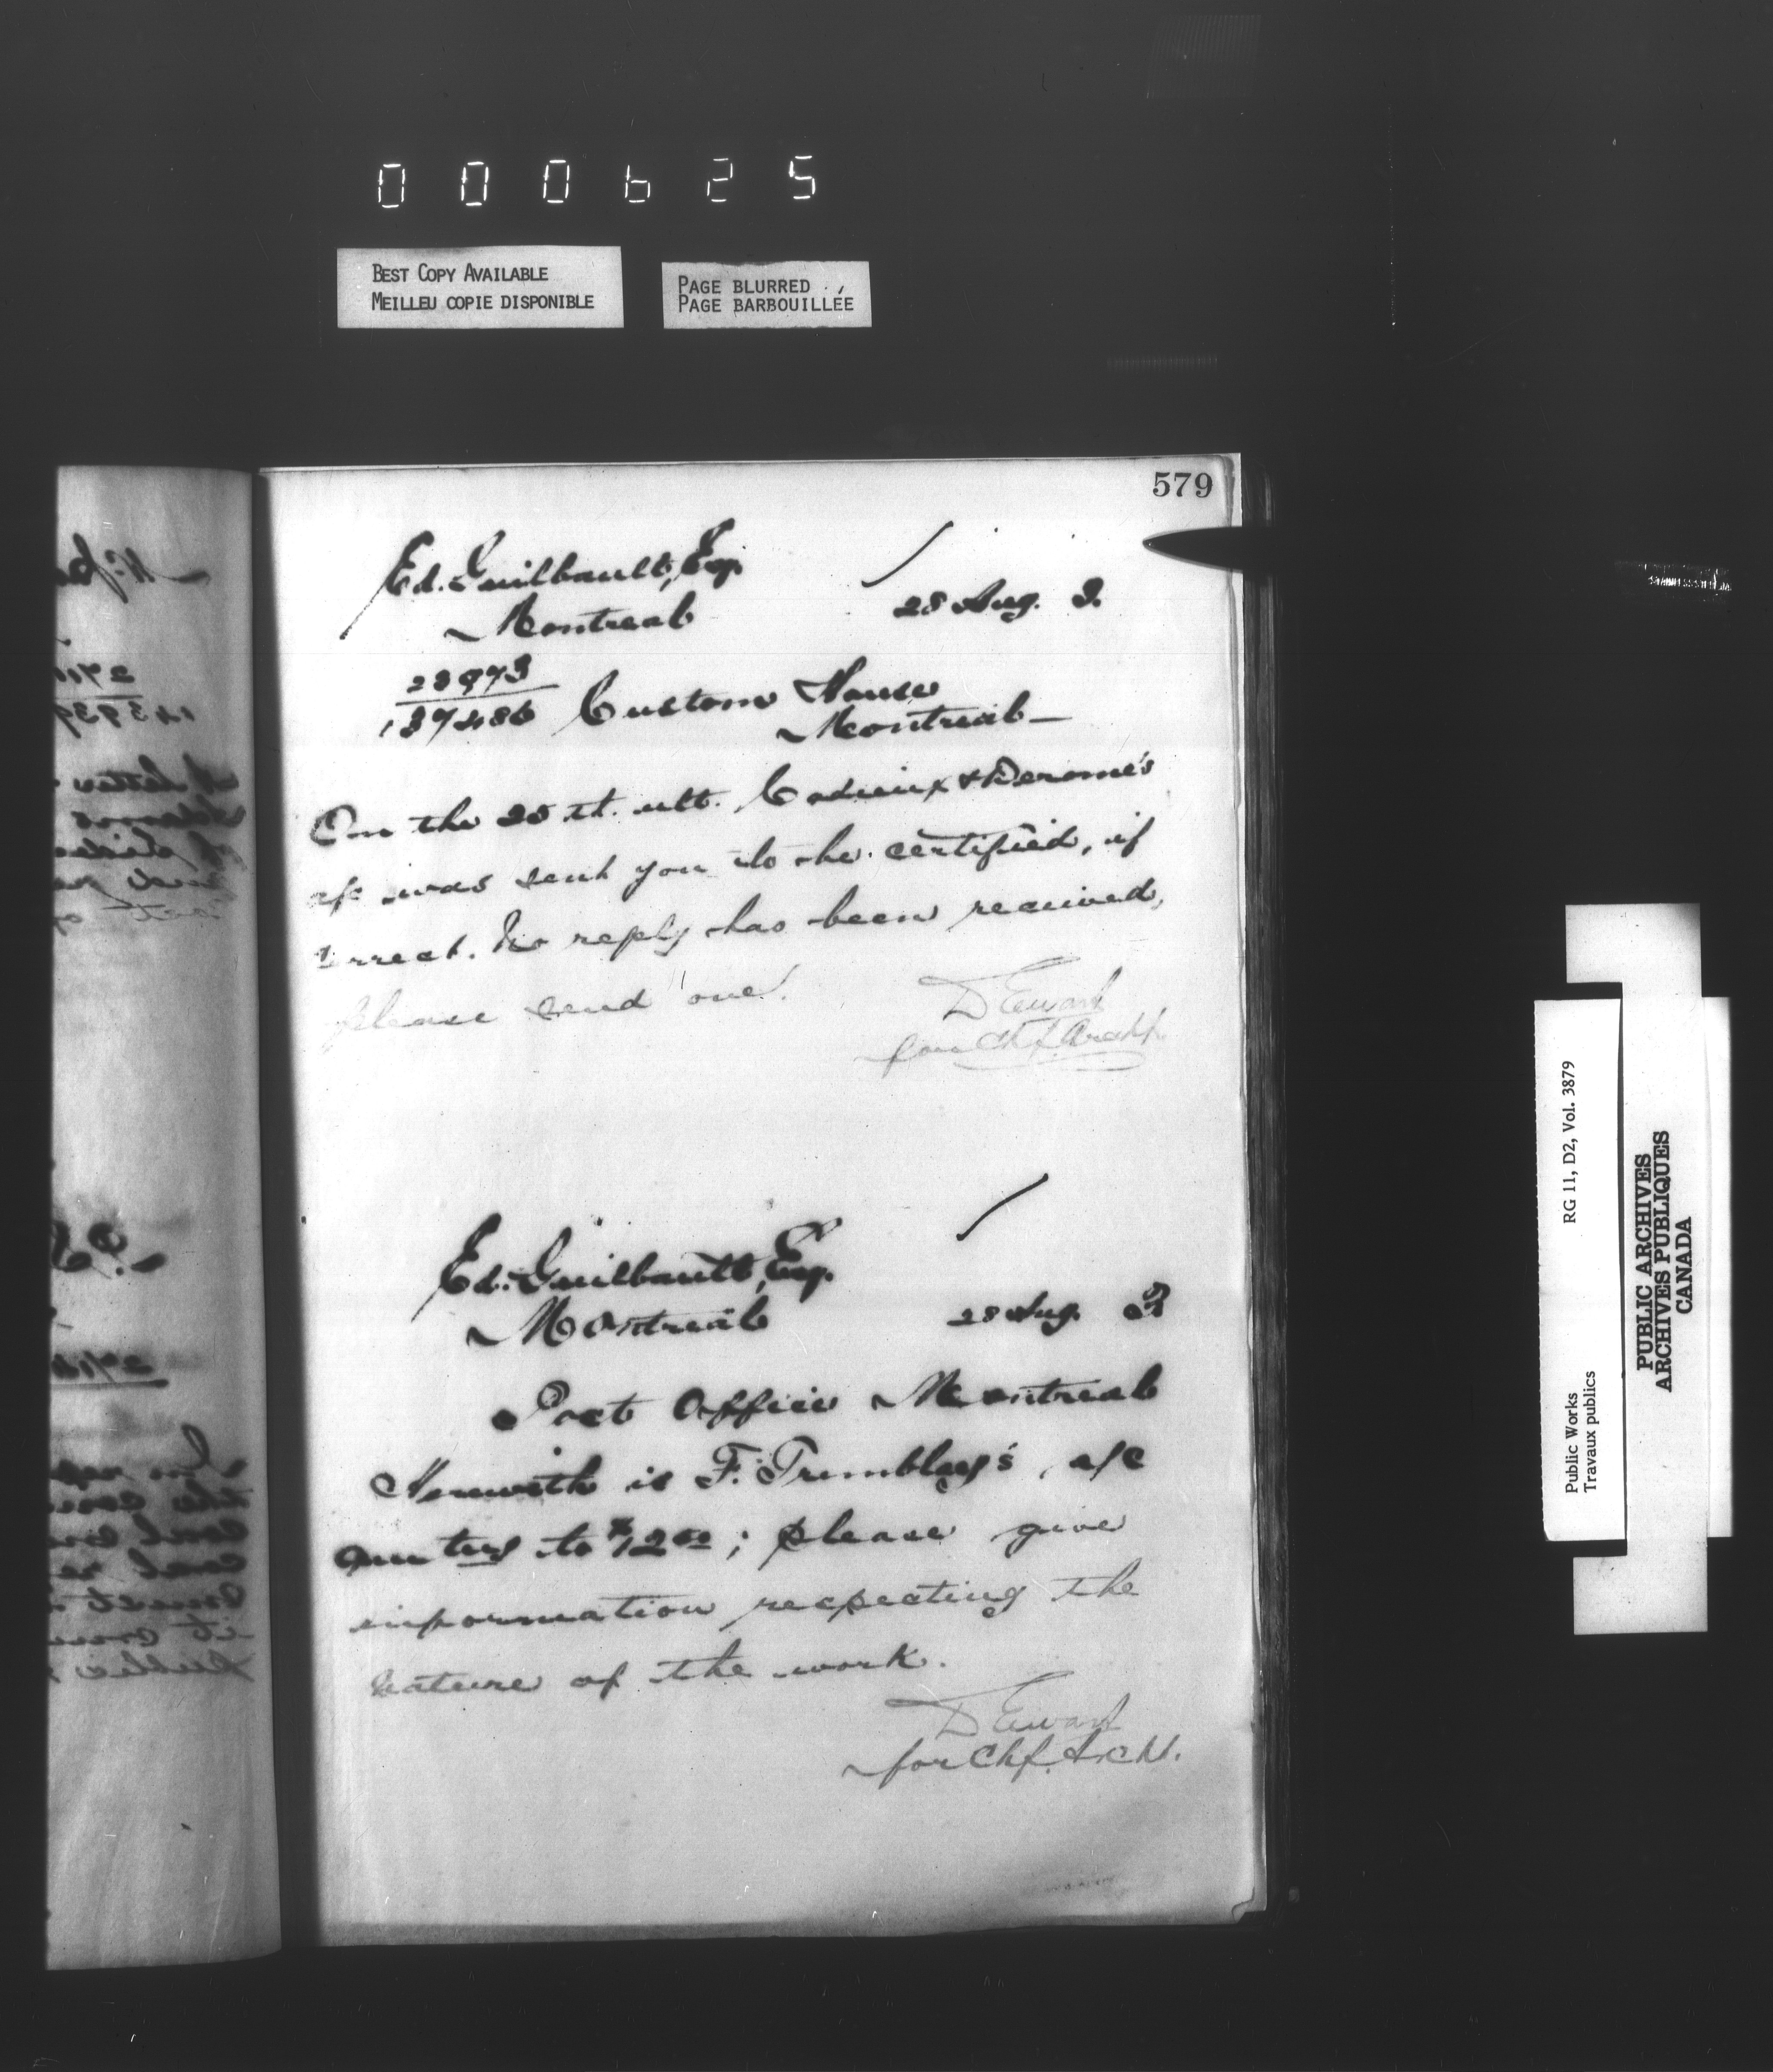 000625
BEST COPY AVAILABLE
MEILLEU COPIE DISPONIBLE
PAGE BLURRED
PAGE BARBOUILLÉE
579
Ed. Guilbault, Esq.
Montreal
28 Aug. 3.
23973
137486
Custom House
Montreal—
On the 25th. ult. Cadieux & Derome's
a/c was sent you to be certified, if
correct. No reply has been received,
please send one.
D Ewart
for Chf Archt.
Ed. Guilbault, Esq.
Montreal
28 Aug. 3
Post Office Montreal
Herewith is F. Tremblay's a/c
amntng to $12.00; please give
information respecting the
nature of the work.
D Ewart
for Chf. Archt.
Public Works
Travaux publics
RG 11, D2, Vol. 3879
PUBLIC ARCHIVES
ARCHIVES PUBLIQUES
CANADA